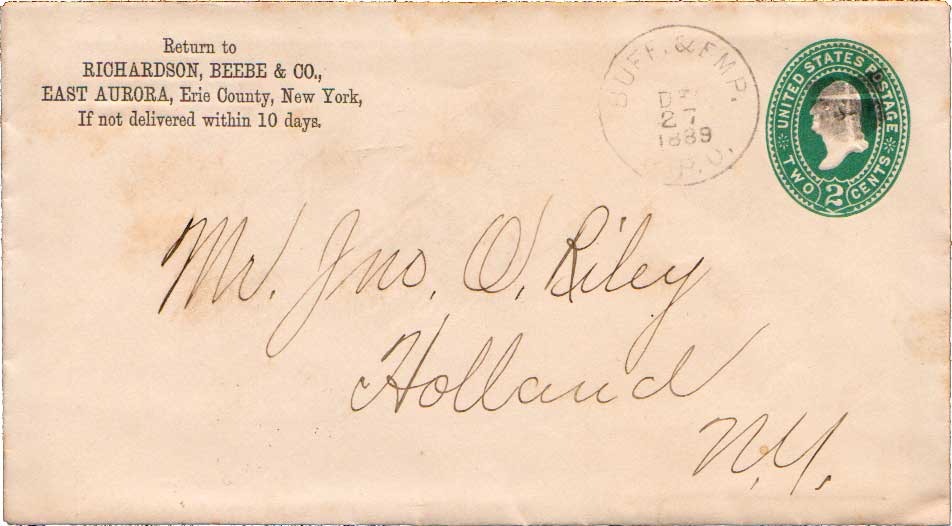 Return to
RICHARDSON, BEEBE & CO.,
EAST AURORA, Erie County, New York,
If not delivered within 10 days.
BUFF. & EMP.
27
1889
P.O.
UNITED STATES POSTAGE
TWO 2 CENTS
Mr. Jno. O. Riley
Holland
N.Y.